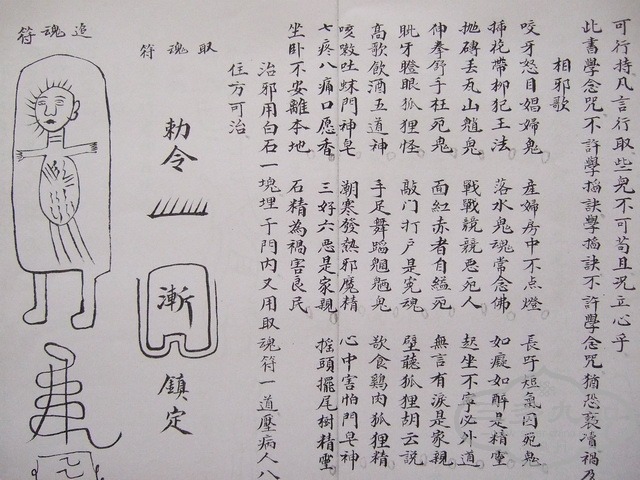 可行持凡言行取些兒不可苟且況立心乎
此書學念咒不許學搯訣學搯訣不許學念咒猶恐褻瀆禍乃
相邪歌
咬牙怒目娼婦鬼 產婦房中不点燈 長吁短氣死鬼
帶柳犯王法 落水鬼魂常念佛 如癡如醉是精靈
拋磚丟瓦山魈鬼 戰戰兢兢惡死人 起坐不寧必外道
伸拳舒手枉死鬼 面紅赤者自縊死 無言有淚是家親
眺牙瞪眼狐狸怪 敲门打户是冤魂 壁聽狐狸胡云説
高歌飲酒五道神 手足舞蹈魍魎鬼 欲食鷄肉狐狸精
咳嗽吐門神皂 潮寒發熱邪魔精 心中害怕門皂神
七疼八痛口愿香 三好六惡是家親 摇頭擺尾樹精靈
坐卧不安離本地 石精為禍害良民
治邪用白石一塊埋于門内又用取魂符一道壓病人八
住方可治
取魂符
勅令
漸
鎮定
追魂符